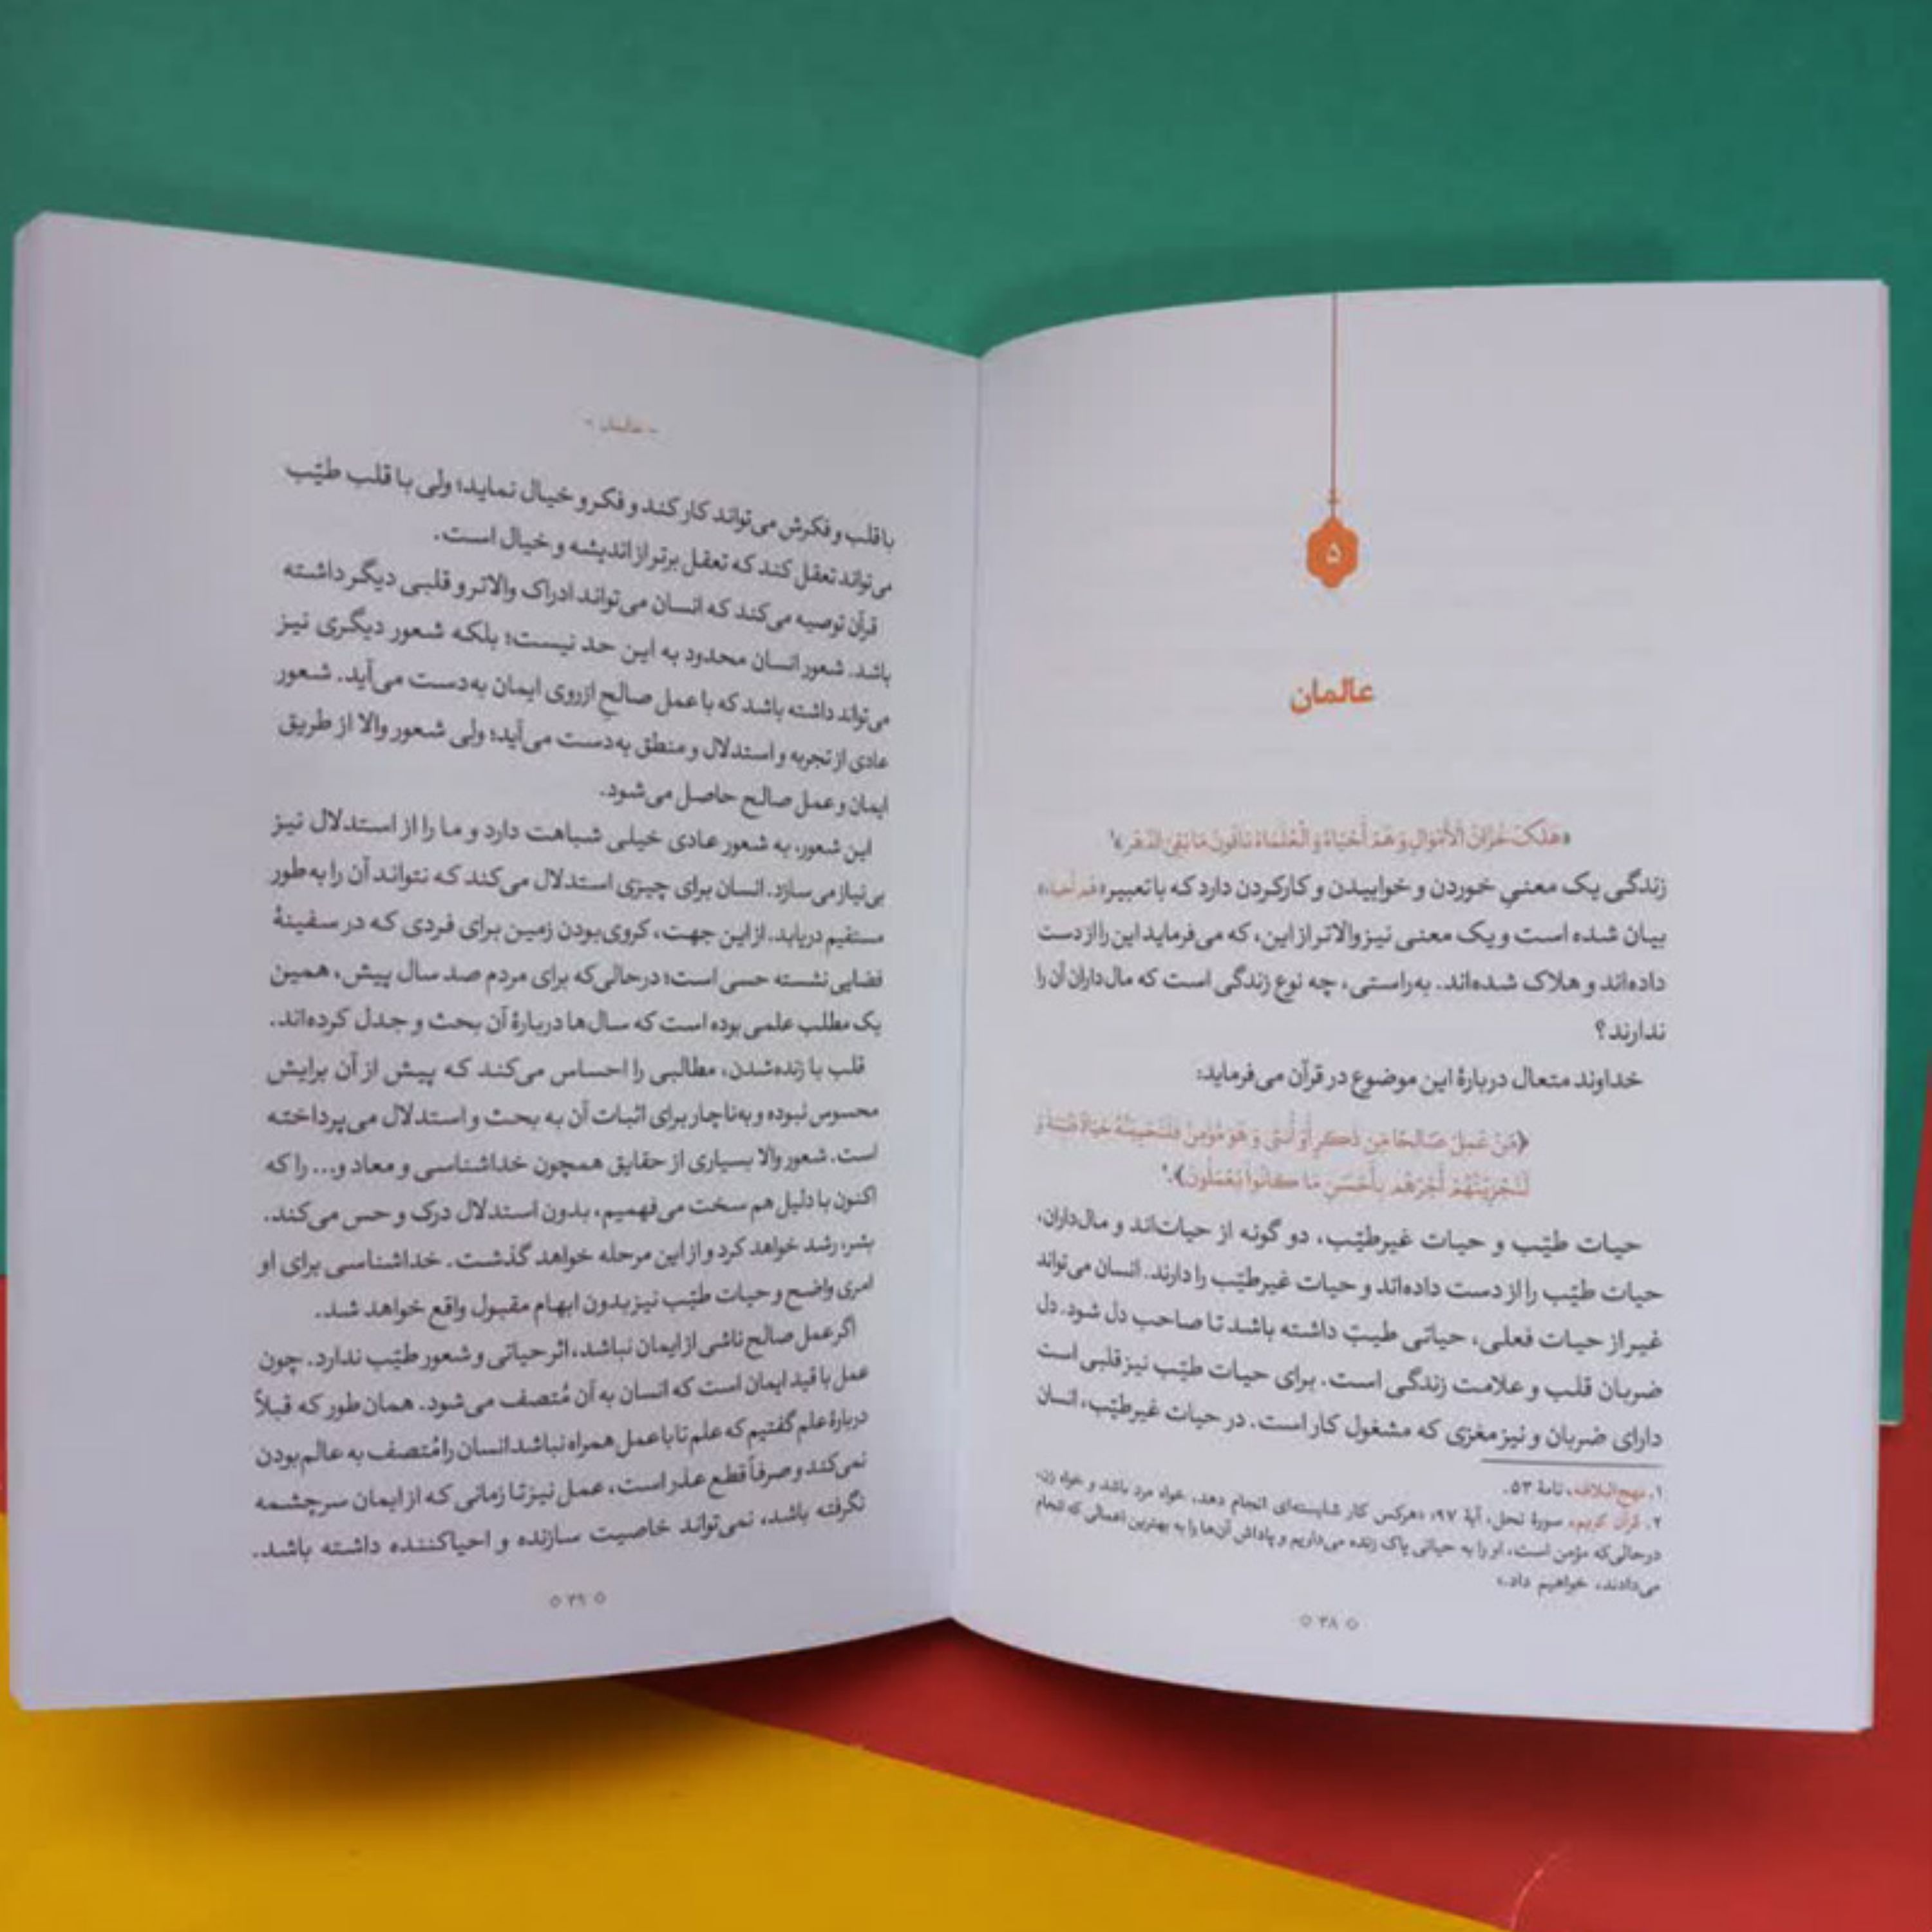 ۵
عالمان
«هَلَکَ خُزّانُ الْأَمْوالِ وَ هُمْ أَحْیَاءٌ وَ الْعُلَمَاءُ بَاقُونَ مَا بَقِیَ الدَّهْر»۱
زندگی یک معنیِ خوردن و خوابیدن و کارکردن دارد که با تعبیر «هُم أحیاء»
بیان شده است و یک معنی نیز والاتر از این، که می‌فرماید این را از دست
داده‌اند و هلاک شده‌اند. به‌راستی، چه نوع زندگی است که مال‌داران آن را
ندارند؟
خداوند متعال دربارهٔ این موضوع در قرآن می‌فرماید:
﴿مَنْ عَمِلَ صَالِحًا مِن ذَکَرٍ أَوْ أُنثَی وَ هُوَ مُؤْمِنٌ فَلَنُحْیِیَنَّهُ حَیَاةً طَیِّبَةً وَ
لَنَجْزِیَنَّهُمْ أَجْرَهُم بِأَحْسَنِ مَا کَانُوا یَعْمَلُونَ﴾.۲
حیات طیّب و حیات غیرطیّب، دو گونه از حیات‌اند و مال‌داران،
حیات طیّب را از دست داده‌اند و حیات غیرطیّب را دارند. انسان می‌تواند
غیر از حیات فعلی، حیاتی طیب داشته باشد تا صاحب دل شود. دل
ضربان قلب و علامت زندگی است. برای حیات طیّب نیز قلبی است
دارای ضربان و نیز مغزی که مشغول کار است. در حیات غیرطیّب، انسان
۱. نهج‌البلاغه، نامهٔ ۵۳.
۲. قرآن کریم، سورهٔ نحل، آیهٔ ۹۷: «هرکس کار شایسته‌ای انجام دهد، خواه مرد باشد و خواه زن،
درحالی‌که مؤمن است، او را به حیاتی پاک زنده می‌داریم و پاداش آن‌ها را به بهترین اعمالی که انجام
می‌دادند، خواهیم داد.»
۳۸
- عالمان -
با قلب و فکرش می‌تواند کار کند و فکر و خیال نماید؛ ولی با قلب طیّب
می‌تواند تعقل کند که تعقل برتر از اندیشه و خیال است.
قرآن توصیه می‌کند که انسان می‌تواند ادراک والاتر و قلبی دیگر داشته
باشد. شعور انسان محدود به این حد نیست؛ بلکه شعور دیگری نیز
می‌تواند داشته باشد که با عمل صالحِ ازروی ایمان به‌دست می‌آید. شعور
عادی از تجربه و استدلال و منطق به‌دست می‌آید؛ ولی شعور والا از طریق
ایمان و عمل صالح حاصل می‌شود.
این شعور، به شعور عادی خیلی شباهت دارد و ما را از استدلال نیز
بی‌نیاز می‌سازد. انسان برای چیزی استدلال می‌کند که نتواند آن را به‌طور
مستقیم دریابد. از این جهت، کروی‌بودن زمین برای فردی که در سفینهٔ
فضایی نشسته حسی است؛ درحالی‌که برای مردم صد سال پیش، همین
یک مطلب علمی بوده است که سال‌ها دربارهٔ آن بحث و جدل کرده‌اند.
قلب با زنده‌شدن، مطالبی را احساس می‌کند که پیش از آن برایش
محسوس نبوده و به‌ناچار برای اثبات آن به بحث و استدلال می‌پرداخته
است. شعور والا بسیاری از حقایق همچون خداشناسی و معاد و... را که
اکنون با دلیل هم سخت می‌فهمیم، بدون استدلال درک و حس می‌کند.
بشر، رشد خواهد کرد و از این مرحله خواهد گذشت. خداشناسی برای او
امری واضح و حیات طیّب نیز بدون ابهام مقبول واقع خواهد شد.
اگر عمل صالح ناشی از ایمان نباشد، اثر حیاتی و شعور طیّب ندارد. چون
عمل با قید ایمان است که انسان به آن مُتصف می‌شود. همان‌طور که قبلاً
دربارهٔ علم گفتیم که علم تا با عمل همراه نباشد انسان را مُتصف به عالم‌بودن
نمی‌کند و صرفاً قطع عذر است، عمل نیز تا زمانی که از ایمان سرچشمه
نگرفته باشد، نمی‌تواند خاصیت سازنده و احیاکننده داشته باشد.
۳۹